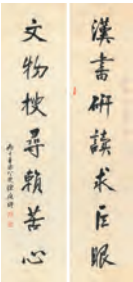 漢書研讀求巨眼
文物搜尋賴苦心